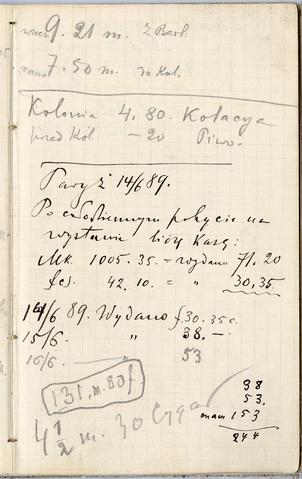 wiecz 9. 21 m. z Berl:
rano 7. 50 m. do Kol.
Kolonia 4. 80. Kolacya
przed Kol. — 20 Piwo.
Paryż 14/6 89.
Po całodziennym pobycie na
wystawie liczę Kasę:
Mk. 1005. 35. = wydano 71. 20
fcs. 42. 10. = " 30,35.
14/6 89. Wydano f 30. 35 c.
15/6. " 38. —
16/6. — " 53
131. m. 80 f.
4 1/2 m. 30 Cygar
38
53.
mam 153
244